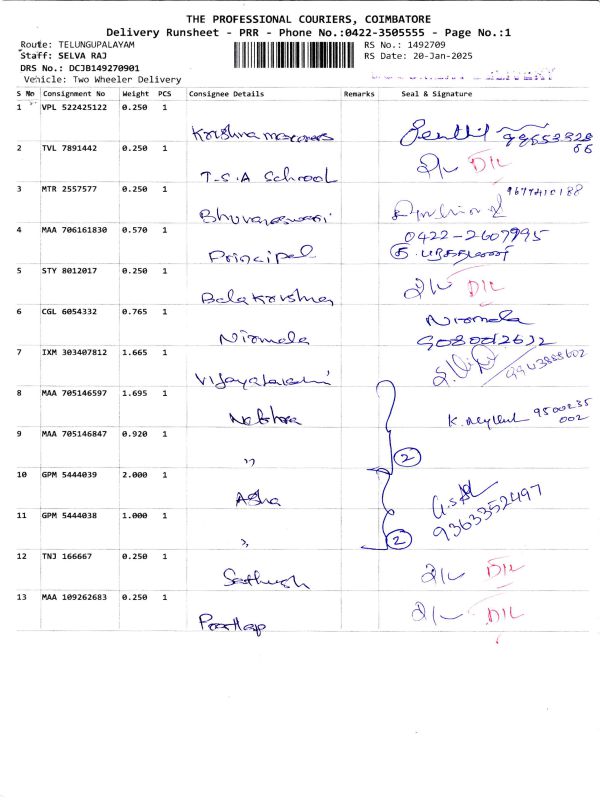 THE PROFESSIONAL COURIERS, COIMBATORE
Delivery Runsheet - PRR - Phone No.:0422-3505555 - Page No.:1
Route: TELUNGUPALAYAM RS No.: 1492709
Staff: SELVA RAJ RS Date: 20-Jan-2025
DRS No.: DCJB149270901
Vehicle: Two Wheeler Delivery DELIVERY
S No Consignment No Weight PCS Consignee Details Remarks Seal & Signature
1 VPL 522425122 0.250 1
Krishna
2 TVL 7891442 0.250 1
T.S.A School D/L
3 MTR 2557577 0.250 1 9677410188
Bhuvaneswari
4 MAA 706161830 0.570 1 0422-2607995
Principal
5 STY 8012017 0.250 1
Balakrishna D/L
6 CGL 6054332 0.765 1 Nirmala
Nirmala
7 IXM 303407812 1.665 1
Vijayalakshmi
8 MAA 705146597 1.695 1 9500235
002
9 MAA 705146847 0.920 1
" 2
10 GPM 5444039 2.000 1
Asha 9363352497
11 GPM 5444038 1.000 1
" 2
12 TNJ 166667 0.250 1
Sathish D/L
13 MAA 109262683 0.250 1
D/L